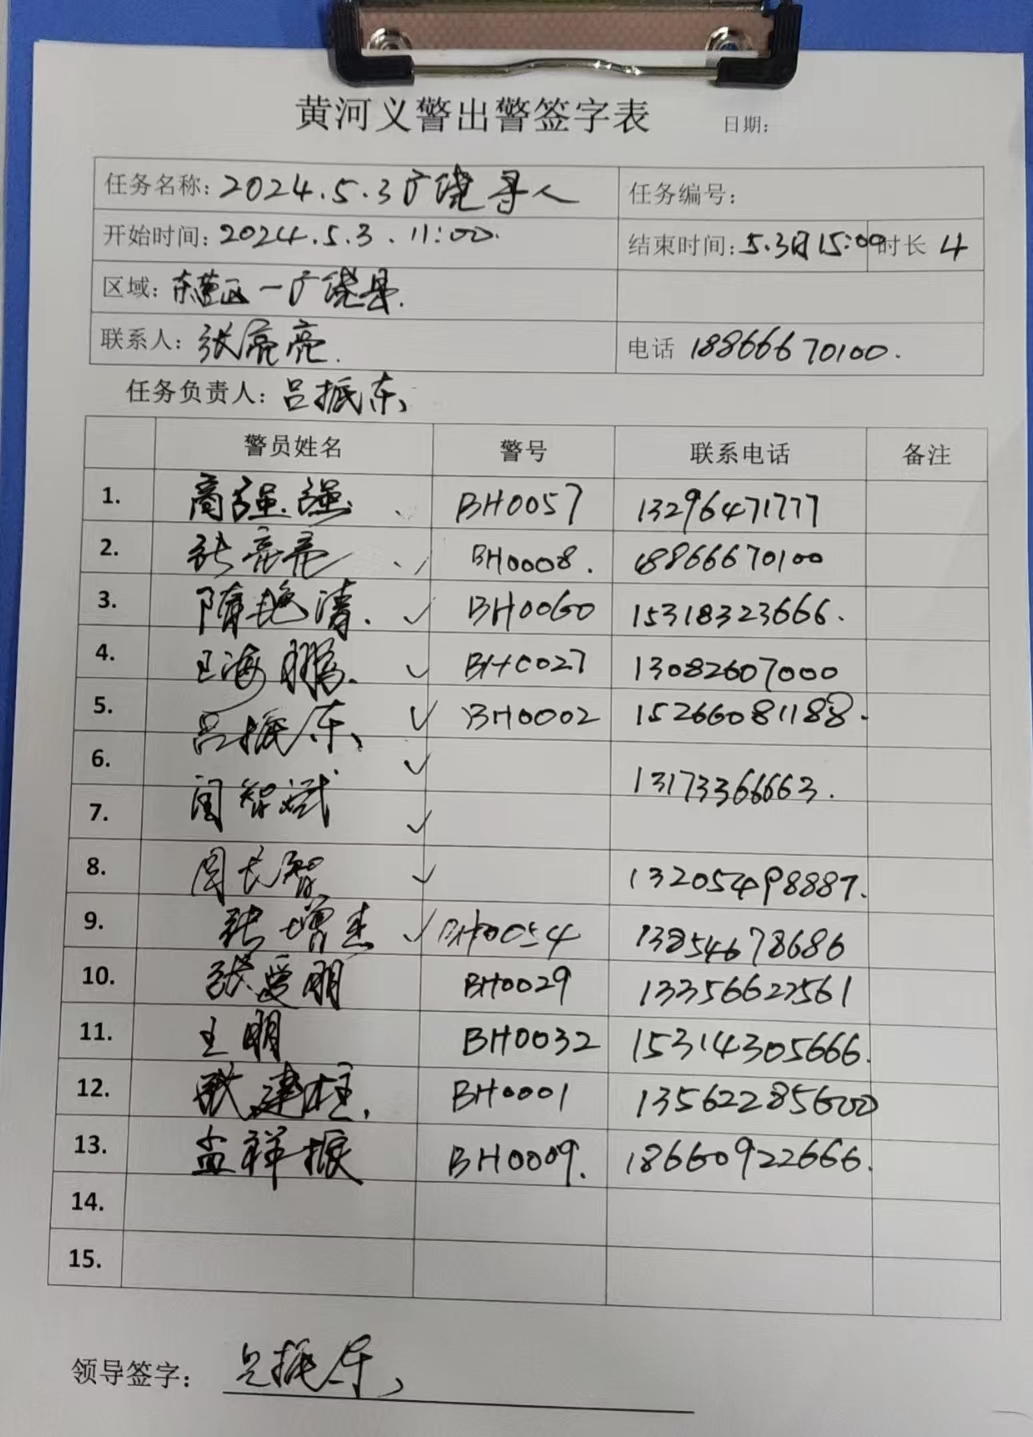 黄河义警出警签字表 日期：
任务名称：2024.5.3广饶寻人 任务编号：
开始时间：2024.5.3.11:00. 结束时间：5.3日15:00 时长 4
区域：东营区一广饶县.
联系人：张亮亮. 电话 18866670100.
任务负责人：吕振东
警员姓名 警号 联系电话 备注
1. 商强强 BH0057 13296471777
2. 张亮亮 BH0008. 18866670100
3. 隋艳涛. ✓ BH0060 15318323666.
4. 王海鹏. ✓ BH0027 13082607000
5. 吕振东 ✓ BH0002 15266081188.
6. ✓ 13173366663.
7. 闫智斌 ✓
8. 周长智 ✓ 13205498887.
9. 张增杰 ✓ BH0054 13854678686
10. 张爱朋 BH0029 13356622561
11. 王朋 BH0032 15314305666.
12. 耿建柱. BH0001 13562285600
13. 孟祥振 BH0009. 18660922666.
14.
15.
领导签字：吕振东